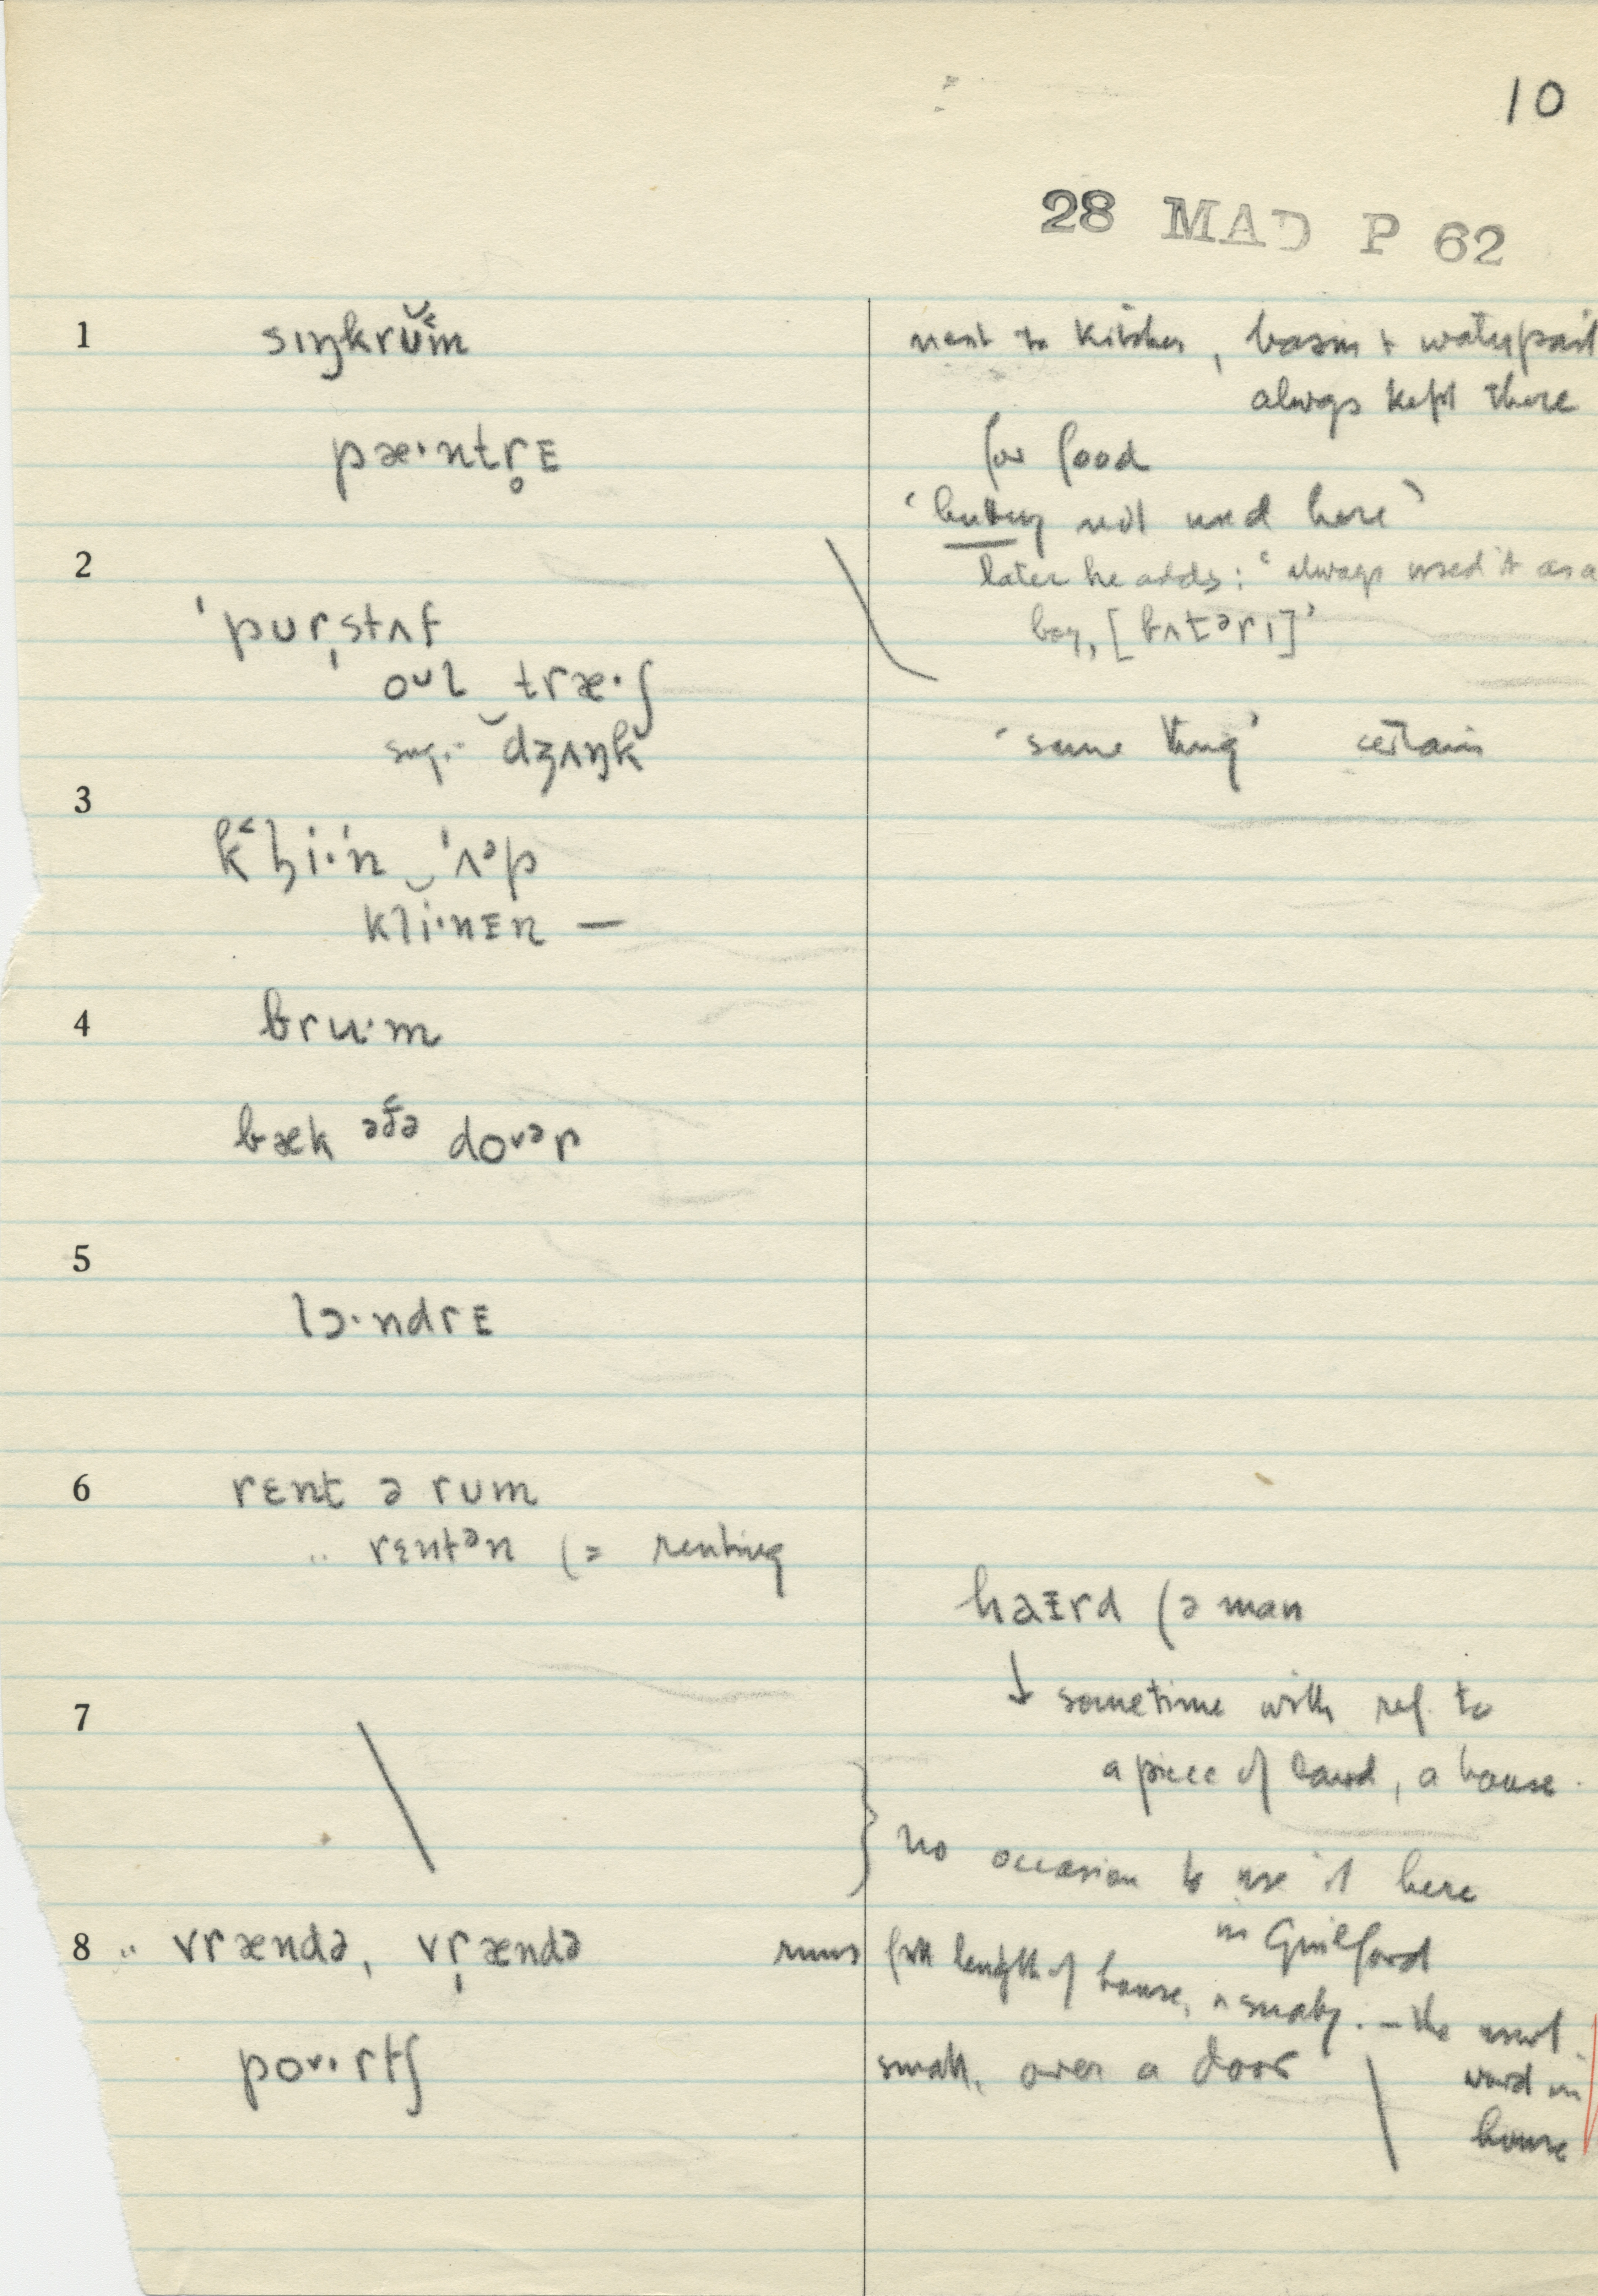 10
28 MAD P 62
1 sıŋkrŭ˂m next to kitchen, basin + waterpail
always kept there
pæ·ntr̥ᴇ for food
'buttery not used here'
2 later he adds: 'always used it as a
'pur̩stʌf boy, [bʌtᵊrı]'
oᵘl træ·ʃ
sug. dʒʌŋk 'same thing' certain
3
k˂l̥i·'n ‿'ʌᵊp
kli·nɪn —
4 bru·m
bæk əðə doᵘᵊr
5
lɔ·ndrᴇ
6 rɛnt ə rum
" rɛntᵊn (= renting
haɪrd (ə man
↓ sometime with ref. to
7
a piece of land, a house.
} no occasion to use it here
in Guilford
8 " vrændə, vr̩ændə runs full length of house, usually. – the usual
word in
house
poᵘ·rtʃ small, over a door